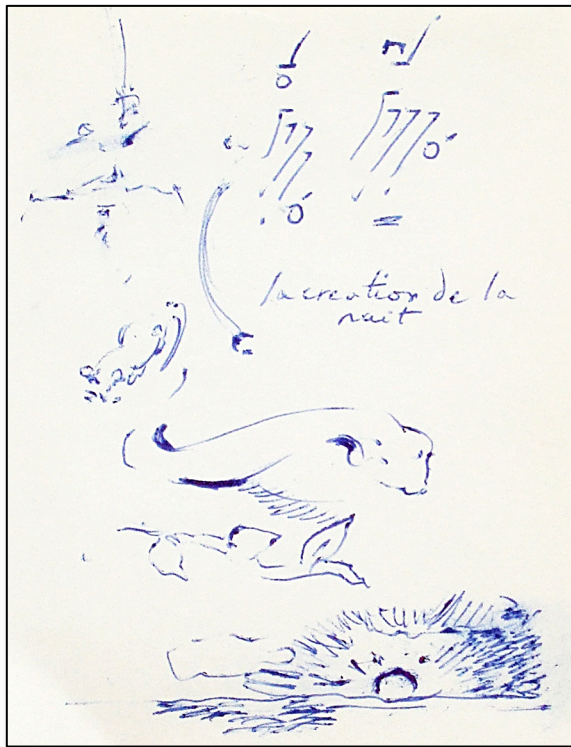 la creation de la
nuit